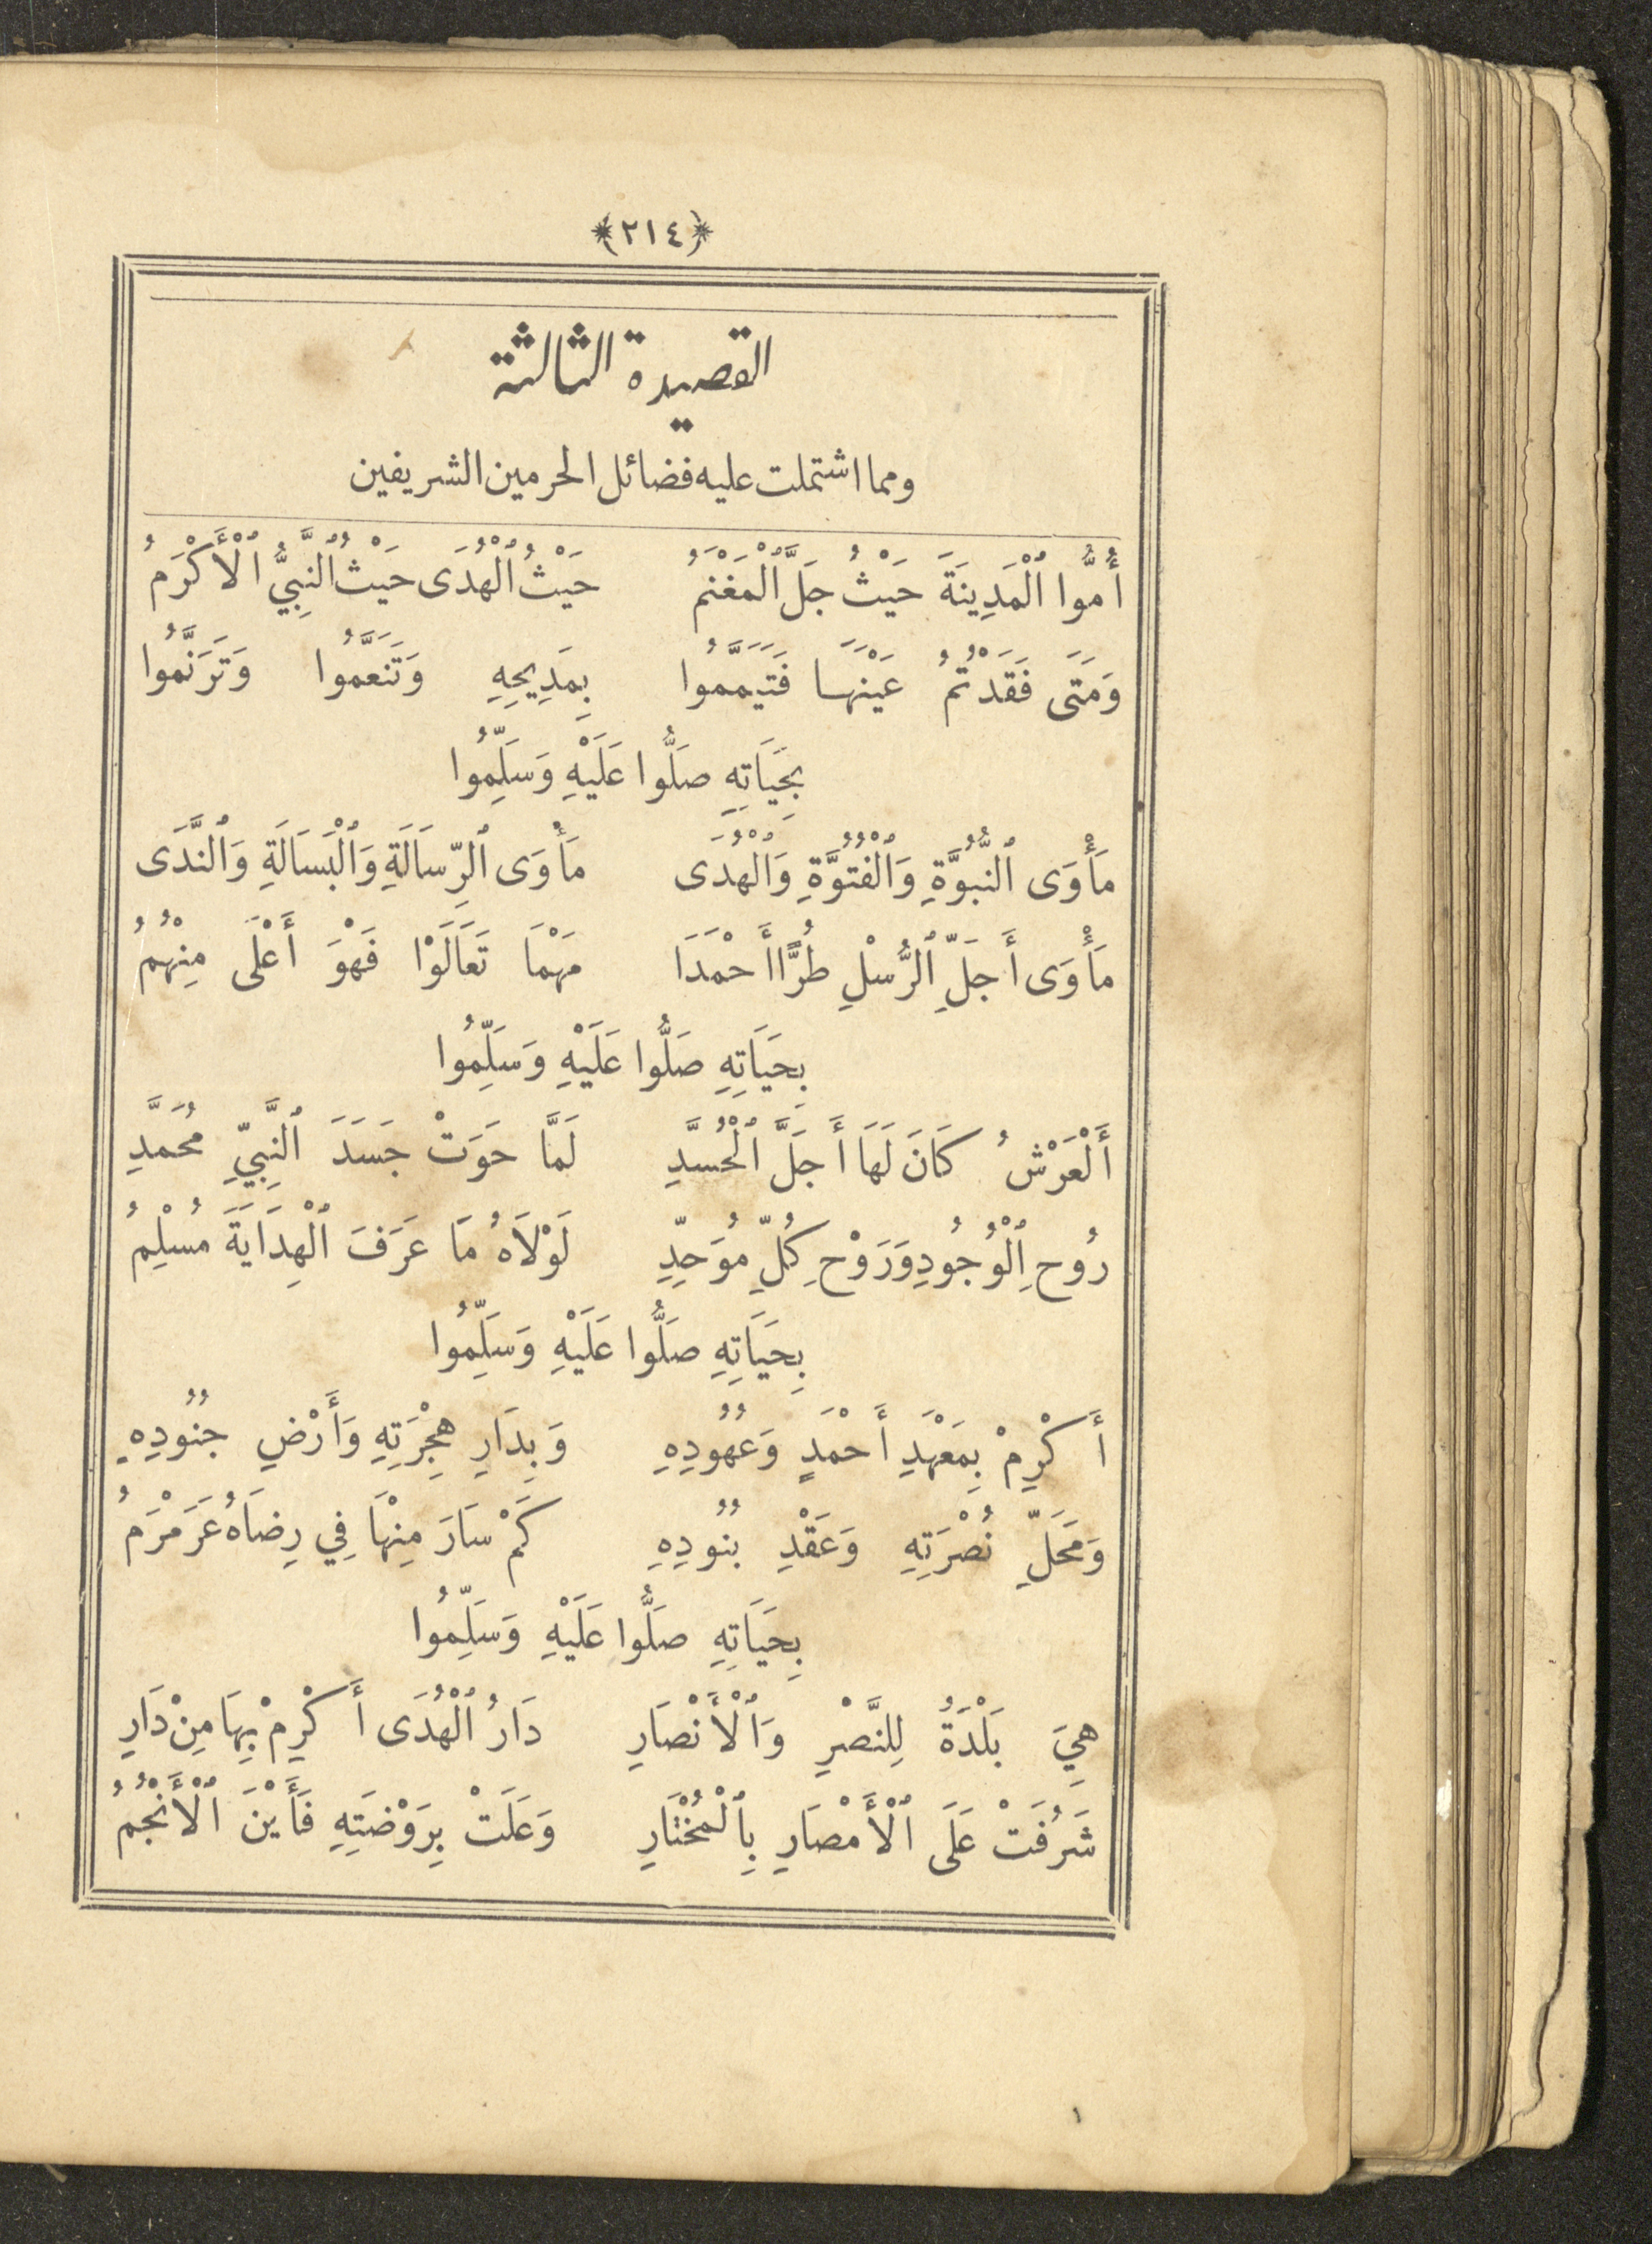 ﴿٢١٤﴾
القصيدة الثالثة
ومما اشتملت عليه فضائل الحرمين الشريفين
أُمُّوا ٱلْمَدِينَةَ حَيْثُ جَلَّ ٱلْمَغْنَمُ حَيْثُ ٱلْهُدَى حَيْثُ ٱلنَّبِيُّ ٱلْأَكْرَمُ
وَمَتَى فَقَدْتُمُ عَيْنَهَا فَتَيَمَّمُوا بِمَدِيحِهِ وَتَنَعَّمُوا وَتَرَنَّمُوا
بِحَيَاتِهِ صَلُّوا عَلَيْهِ وَسَلِّمُوا
مَأْوَى ٱلنُّبُوَّةِ وَٱلْفُتُوَّةِ وَٱلْهُدَى مَأْوَى ٱلرِّسَالَةِ وَٱلْبَسَالَةِ وَٱلنَّدَى
مَأْوَى أَجَلِّ ٱلرُّسْلِ طُرًّا أَحْمَدَا مَهْمَا تَعَالَوْا فَهْوَ أَعْلَى مِنْهُمُ
بِحَيَاتِهِ صَلُّوا عَلَيْهِ وَسَلِّمُوا
أَلْعَرْشُ كَانَ لَهَا أَجَلَّ ٱلْحُسَّدِ لَمَّا حَوَتْ جَسَدَ ٱلنَّبِيِّ مُحَمَّدِ
رُوحِ ٱلْوُجُودِ وَرَوْحِ كُلِّ مُوَحِّدِ لَوْلَاهُ مَا عَرَفَ ٱلْهِدَايَةَ مُسْلِمُ
بِحَيَاتِهِ صَلُّوا عَلَيْهِ وَسَلِّمُوا
أَكْرِمْ بِمَعْهَدِ أَحْمَدٍ وَعُهُودِهِ وَبِدَارِ هِجْرَتِهِ وَأَرْضِ جُنُودِهِ
وَمَحَلِّ نُصْرَتِهِ وَعَقْدِ بُنُودِهِ كَمْ سَارَ مِنْهَا فِي رِضَاهُ عَرَمْرَمُ
بِحَيَاتِهِ صَلُّوا عَلَيْهِ وَسَلِّمُوا
هِيَ بَلْدَةُ لِلنَّصْرِ وَٱلْأَنْصَارِ دَارُ ٱلْهُدَى أَكْرِمْ بِهَا مِنْ دَارِ
شَرُفَتْ عَلَى ٱلْأَمْصَارِ بِٱلْمُخْتَارِ وَعَلَتْ بِرَوْضَتِهِ فَأَيْنَ ٱلْأَنْجُمُ
١